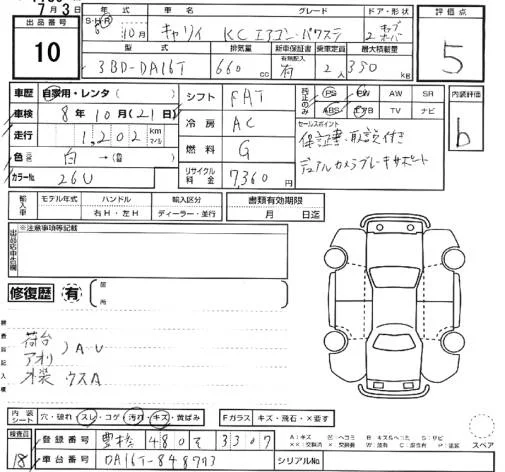 7月3日
出品番号
10
年式 車名 グレード ドア・形状 評価点
S・H・R 6年 10月 キャリイ KCエアコン・パワステ 2
型式 排気量 新車保証書 乗車定員 最大積載量
有無記入
3BD-DA16T 660 cc 有 2人 350 kg
5
車歴 自家用・レンタ( )
車検 8年10月(21日)
走行 1,202 km マイル
色 白→(替 )
カラーNo. 26U
シフト FAT
冷房 AC
燃料 G
リサイクル料金 7,360円
純正のみ
PS PW AW SR
ABS エアB TV ナビ
内装評価
b
セールスポイント
保証書・取説付き
デュアルカメラブレーキサポート
輸入車 モデル年式 ハンドル 輸入区分 書類有効期限
右H・左H ディーラー・並行 月 日迄
出品店申告欄
※注意事項等記載
修復歴 有
箇所
検査員記入欄
荷台
アオリ )AU
木装 ウスA
内装シート 穴・破れ・スレ・コゲ・汚れ・キズ・黄ばみ Fガラス キズ・飛石・×要す
検査員
18
登録番号 豊橋 480 さ 3307
車台番号 DA16T-848773 シリアルNo.
スペア